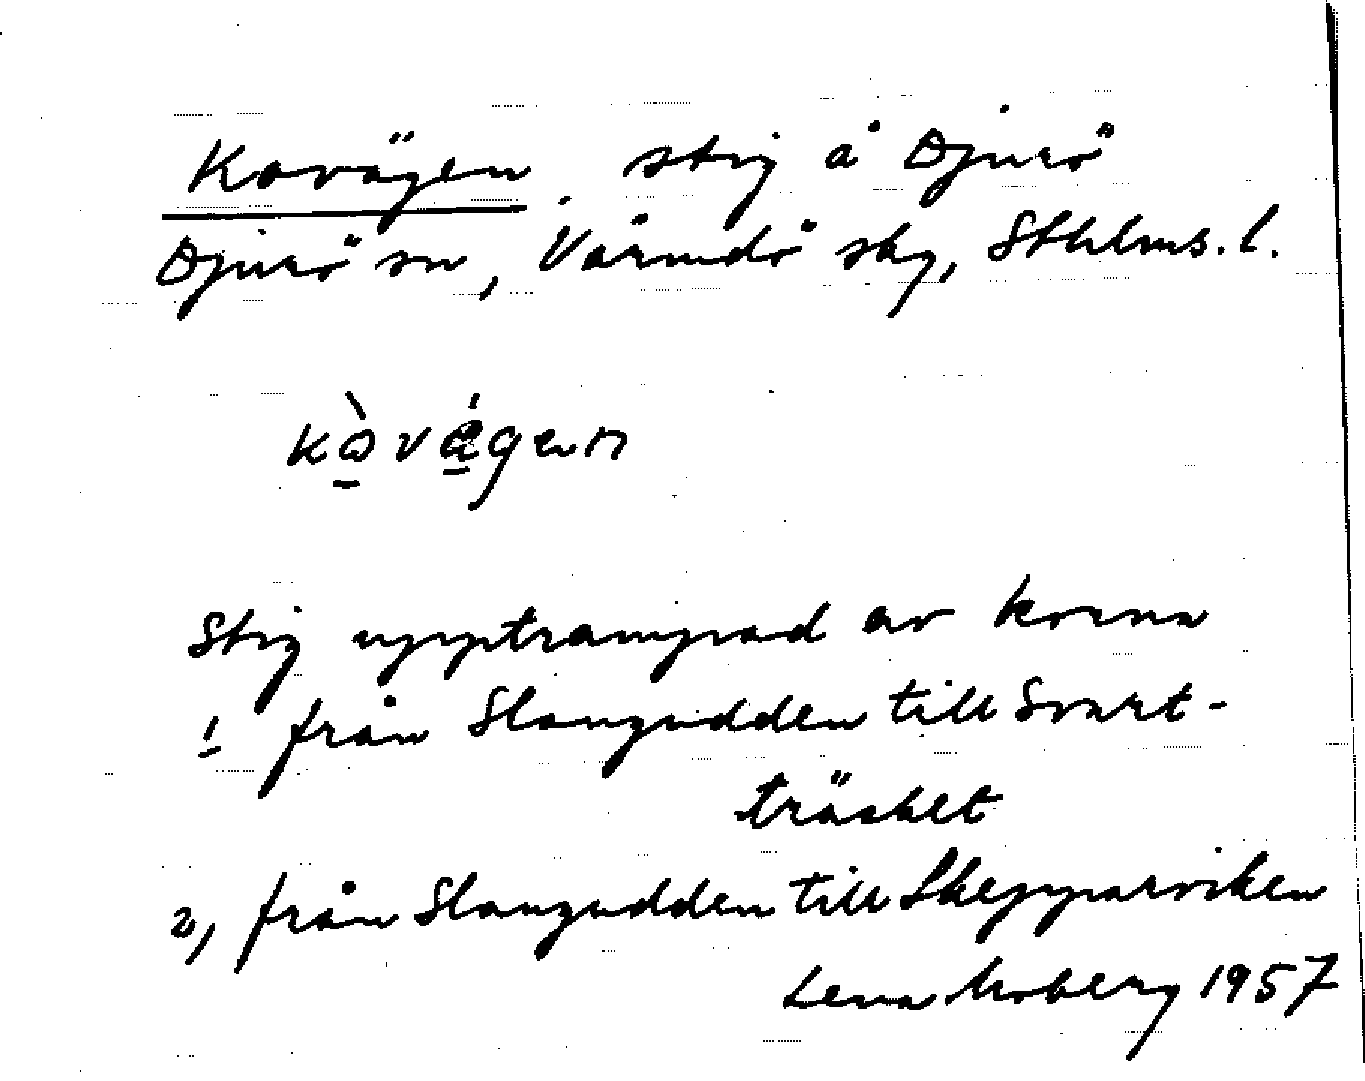 Kovägen stig å Djurö
Djurö sn, Värmdö skg, Sthlms. l.
kòvä́gen
Stig upptrampad av korna
1 från Slangudden till Svart-
träsket
2, från Slangudden till Skepparviken
Lena Moberg 1957